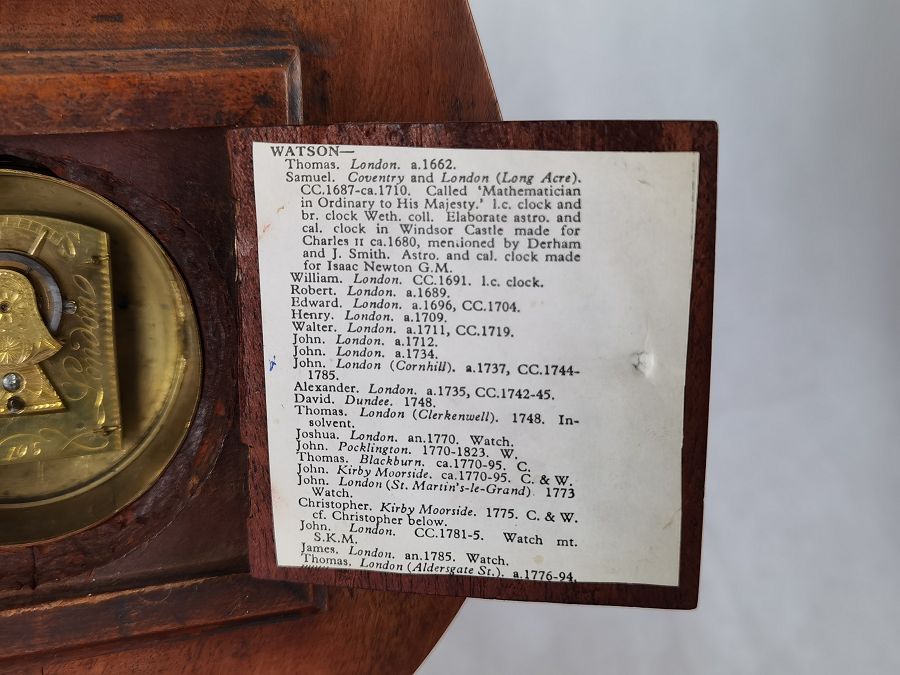 WATSON—
Thomas. London. a.1662.
Samuel. Coventry and London (Long Acre).
CC.1687-ca.1710. Called 'Mathematician
in Ordinary to His Majesty.' l.c. clock and
br. clock Weth. coll. Elaborate astro. and
cal. clock in Windsor Castle made for
Charles II ca.1680, mentioned by Derham
and J. Smith. Astro. and cal. clock made
for Isaac Newton G.M.
William. London. CC.1691. l.c. clock.
Robert. London. a.1689.
Edward. London. a.1696, CC.1704.
Henry. London. a.1709.
Walter. London. a.1711, CC.1719.
John. London. a.1712.
John. London. a.1734.
John. London (Cornhill). a.1737, CC.1744-
1785.
Alexander. London. a.1735, CC.1742-45.
David. Dundee. 1748.
Thomas. London (Clerkenwell). 1748. In-
solvent.
Joshua. London. an.1770. Watch.
John. Pocklington. 1770-1823. W.
Thomas. Blackburn. ca.1770-95. C.
John. Kirby Moorside. ca.1770-95. C. & W.
John. London (St. Martin's-le-Grand) 1773
Watch.
Christopher. Kirby Moorside. 1775. C. & W.
cf. Christopher below.
John. London. CC.1781-5. Watch mt.
S.K.M.
James. London. an.1785. Watch.
Thomas. London (Aldersgate St.). a.1776-94,